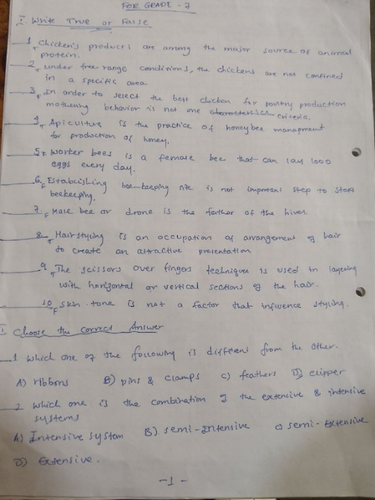 FOR GRADE - 7
I. Write True or False
1. T Chicken's product are among the major source of animal
protein.
2. T under free range conditions, the chickens are not confined
in a specific area
3. F In order to select the best chicken for poultry production
mothering behavior is not one criteria.
4. T Apiculture is the practice of honeybee management
for production of honey.
5. F Worker bees is a female bee that can lay 1000
eggs every day.
6. F Establishing bee keeping site is not important step to start
beekeeping.
7. F Male bee or drone is the father of the hives.
8. T Hairstyling is an occupation of arrangement of hair
to create an attractive presentation
9. T The scissors over fingers technique is used in layering
with horizontal or vertical sections of the hair.
10. F skin tone is not a factor that influence styling.
I. Choose the correct Answer
1 Which one of the following is different from the other.
A) ribbons B) pins & clamps C) feathers D) clipper
2 Which one is the combination of the extensive & intensive
systems
A) Intensive system B) semi-Intensive C) semi-Extensive
D) Extensive.
-1-